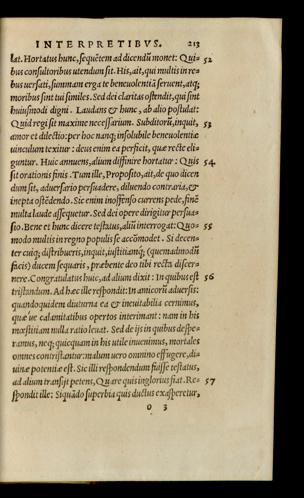 INTERPRETIBVS. 213
lat. Hortatus hunc, sequētem ad dicendū monet: Qui- 52
bus consultoribus utendum sit. His, ait, qui multis in re-
bus uersati, summam erga te beneuolentiā seruent, atq;
moribus sint tui similes. Sed dei claritas ostendit, qui sint
huiusmodi digni. Laudans & hunc, ab alio postulat:
Quid regi sit maxime necessarium. Subditorū, inquit, 53
amor et dilectio: per hoc nanq; insolubile beneuolentiæ
uinculum texitur: deus enim ea perficit, quæ recte eli-
guntur. Huic annuens, alium diffinire hortatur: Quis 54
sit orationis finis. Tum ille, Proposito, ait, de quo dicen
dum sit, aduersario persuadere, diluendo contraria, &
inepta ostēdendo. Sic enim inoffenso currens pede, finē
multa laude assequetur. Sed dei opere dirigitur persua-
sio. Bene et hunc dicere testatus, aliū interrogat: Quo- 55
modo multis in regno populis se accōmodet. Si decen-
ter cuiq; distribueris, inquit, iustitiāq; (quemadmodū
facis) ducem sequaris, præbente deo tibi recta discer-
nere. Congratulatus huic, ad alium dixit: In quibus est 56
tristandum. Ad hæc ille respondit: In amicorū aduersis:
quandoquidem diuturna ea & ineuitabilia cernimus,
quæ ue calamitatibus opertos interimant: nam in his
mœstitiam nulla ratio leuat. Sed de ijs in quibus despe-
ramus, neq; quicquam in his utile inuenimus, mortales
omnes contristantur: malum uero omnino effugere, di-
uinæ potentiæ est. Sic illi respondendum fuisse testatus,
ad alium transijt petens, Quare quis inglorius fiat. Re- 57
spondit ille: Siquādo superbia quis ductus exasperetur,
o 3